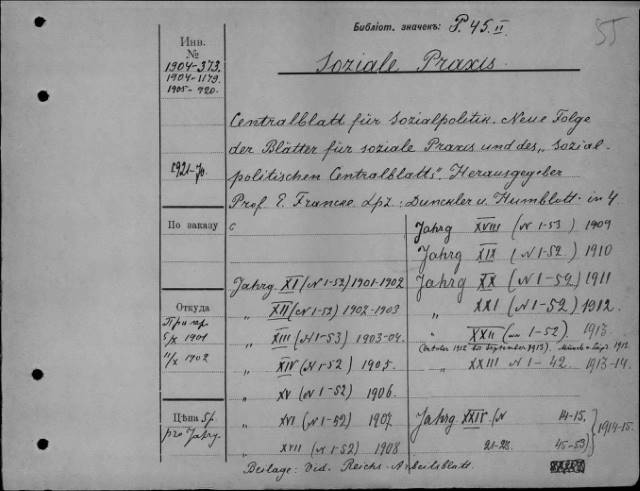 Библіот. значекъ: P. 45 II
55
Soziale Praxis.
Инв.
№
1904-373.
1904-1179.
1905-920.
1921-70.
Centralblatt für Sozialpolitik. Neue Folge
der Blätter für soziale Praxis und des „Sozial-
politischen Centralblatts“. Herausgegeber
Prof. E. Francke. Lpz.: Dunckler u. Humblott. in 4.
По заказу
с
Откуда
1901
1902
Цѣна
pro Jahrg.
Jahrg. XI (N 1-52) 1901-1902
„ XII (N 1-52) 1902-1903
„ XIII (N 1-53) 1903-04.
„ XIV (N 1-52) 1905.
„ XV (N 1-52) 1906.
„ XVI (N 1-52) 1907.
„ XVII (N 1-52) 1908
Jahrg XVIII (N 1-53) 1909
Jahrg XIX (N 1-52.) 1910
Jahrg XX (N 1-52) 1911
„ XXI (N 1-52) 1912.
„ XXII (N 1-52) 1913.
(October 1912 bis September 1913). 1913.
„ XXIII N 1-42. 1913-14.
Jahrg. XXIV (N 14-15.
21-23. 45-53) 1914-15.
Beilage: Vid. Reichs-Arbeitsblatt.